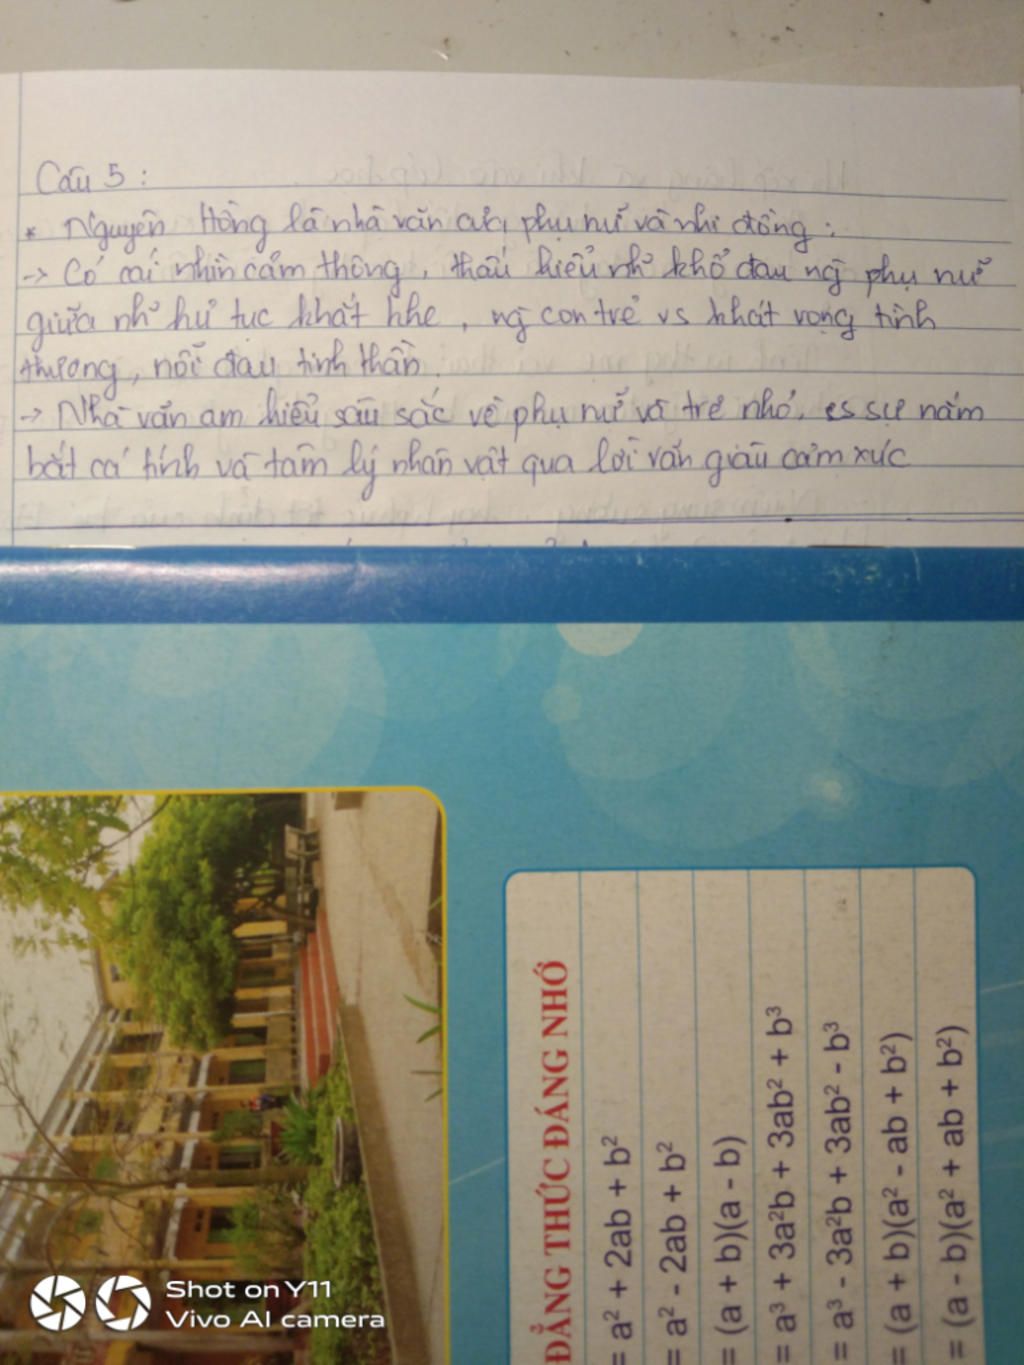 Câu 5 :
* Nguyên Hồng là nhà văn của phụ nữ và nhi đồng :
-> Có cái nhìn cảm thông, thấu hiểu nh~ khổ đau ng~ phụ nữ
giữa nh~ hủ tục khắt khe, ng~ con trẻ vs khát vọng tình
thương, nỗi đau tinh thần.
-> Nhà văn am hiểu sâu sắc về phụ nữ và trẻ nhỏ, sự nắm
bắt cá tính và tâm lý nhân vật qua lời văn giàu cảm xúc
ĐẲNG THỨC ĐÁNG NHỚ
= a² + 2ab + b²
= a² - 2ab + b²
= (a + b)(a - b)
= a³ + 3a²b + 3ab² + b³
= a³ - 3a²b + 3ab² - b³
= (a + b)(a² - ab + b²)
= (a - b)(a² + ab + b²)
Shot on Y11
Vivo AI camera